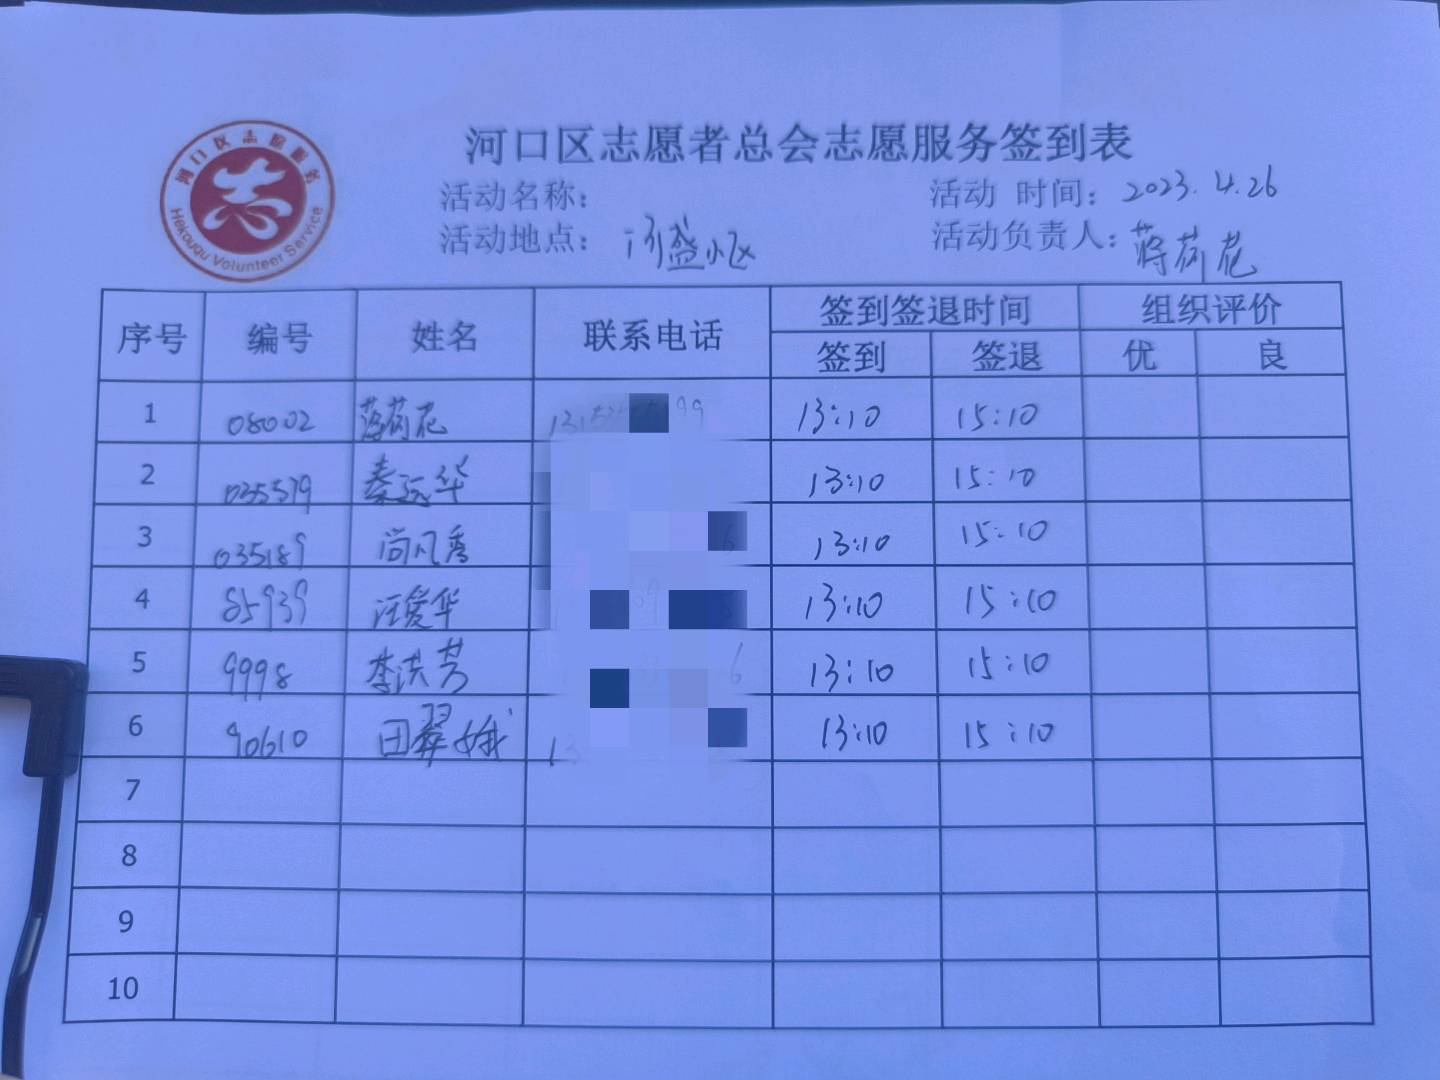 河口区志愿服务
Hekouqu Volunteer Service
河口区志愿者总会志愿服务签到表
活动名称： 活动 时间： 2023.4.26
活动地点： 盛小区 活动负责人： 蒋荷花
序号 编号 姓名 联系电话 签到签退时间 组织评价
签到 签退 优 良
1 08002 蒋荷花 13:10 15:10
2 035579 秦远华 13:10 15:10
3 035189 尚凡秀 13:10 15:10
4 85939 汪爱华 13:10 15:10
5 9998 李洪芳 13:10 15:10
6 90610 田翠娥 13 13:10 15:10
7
8
9
10